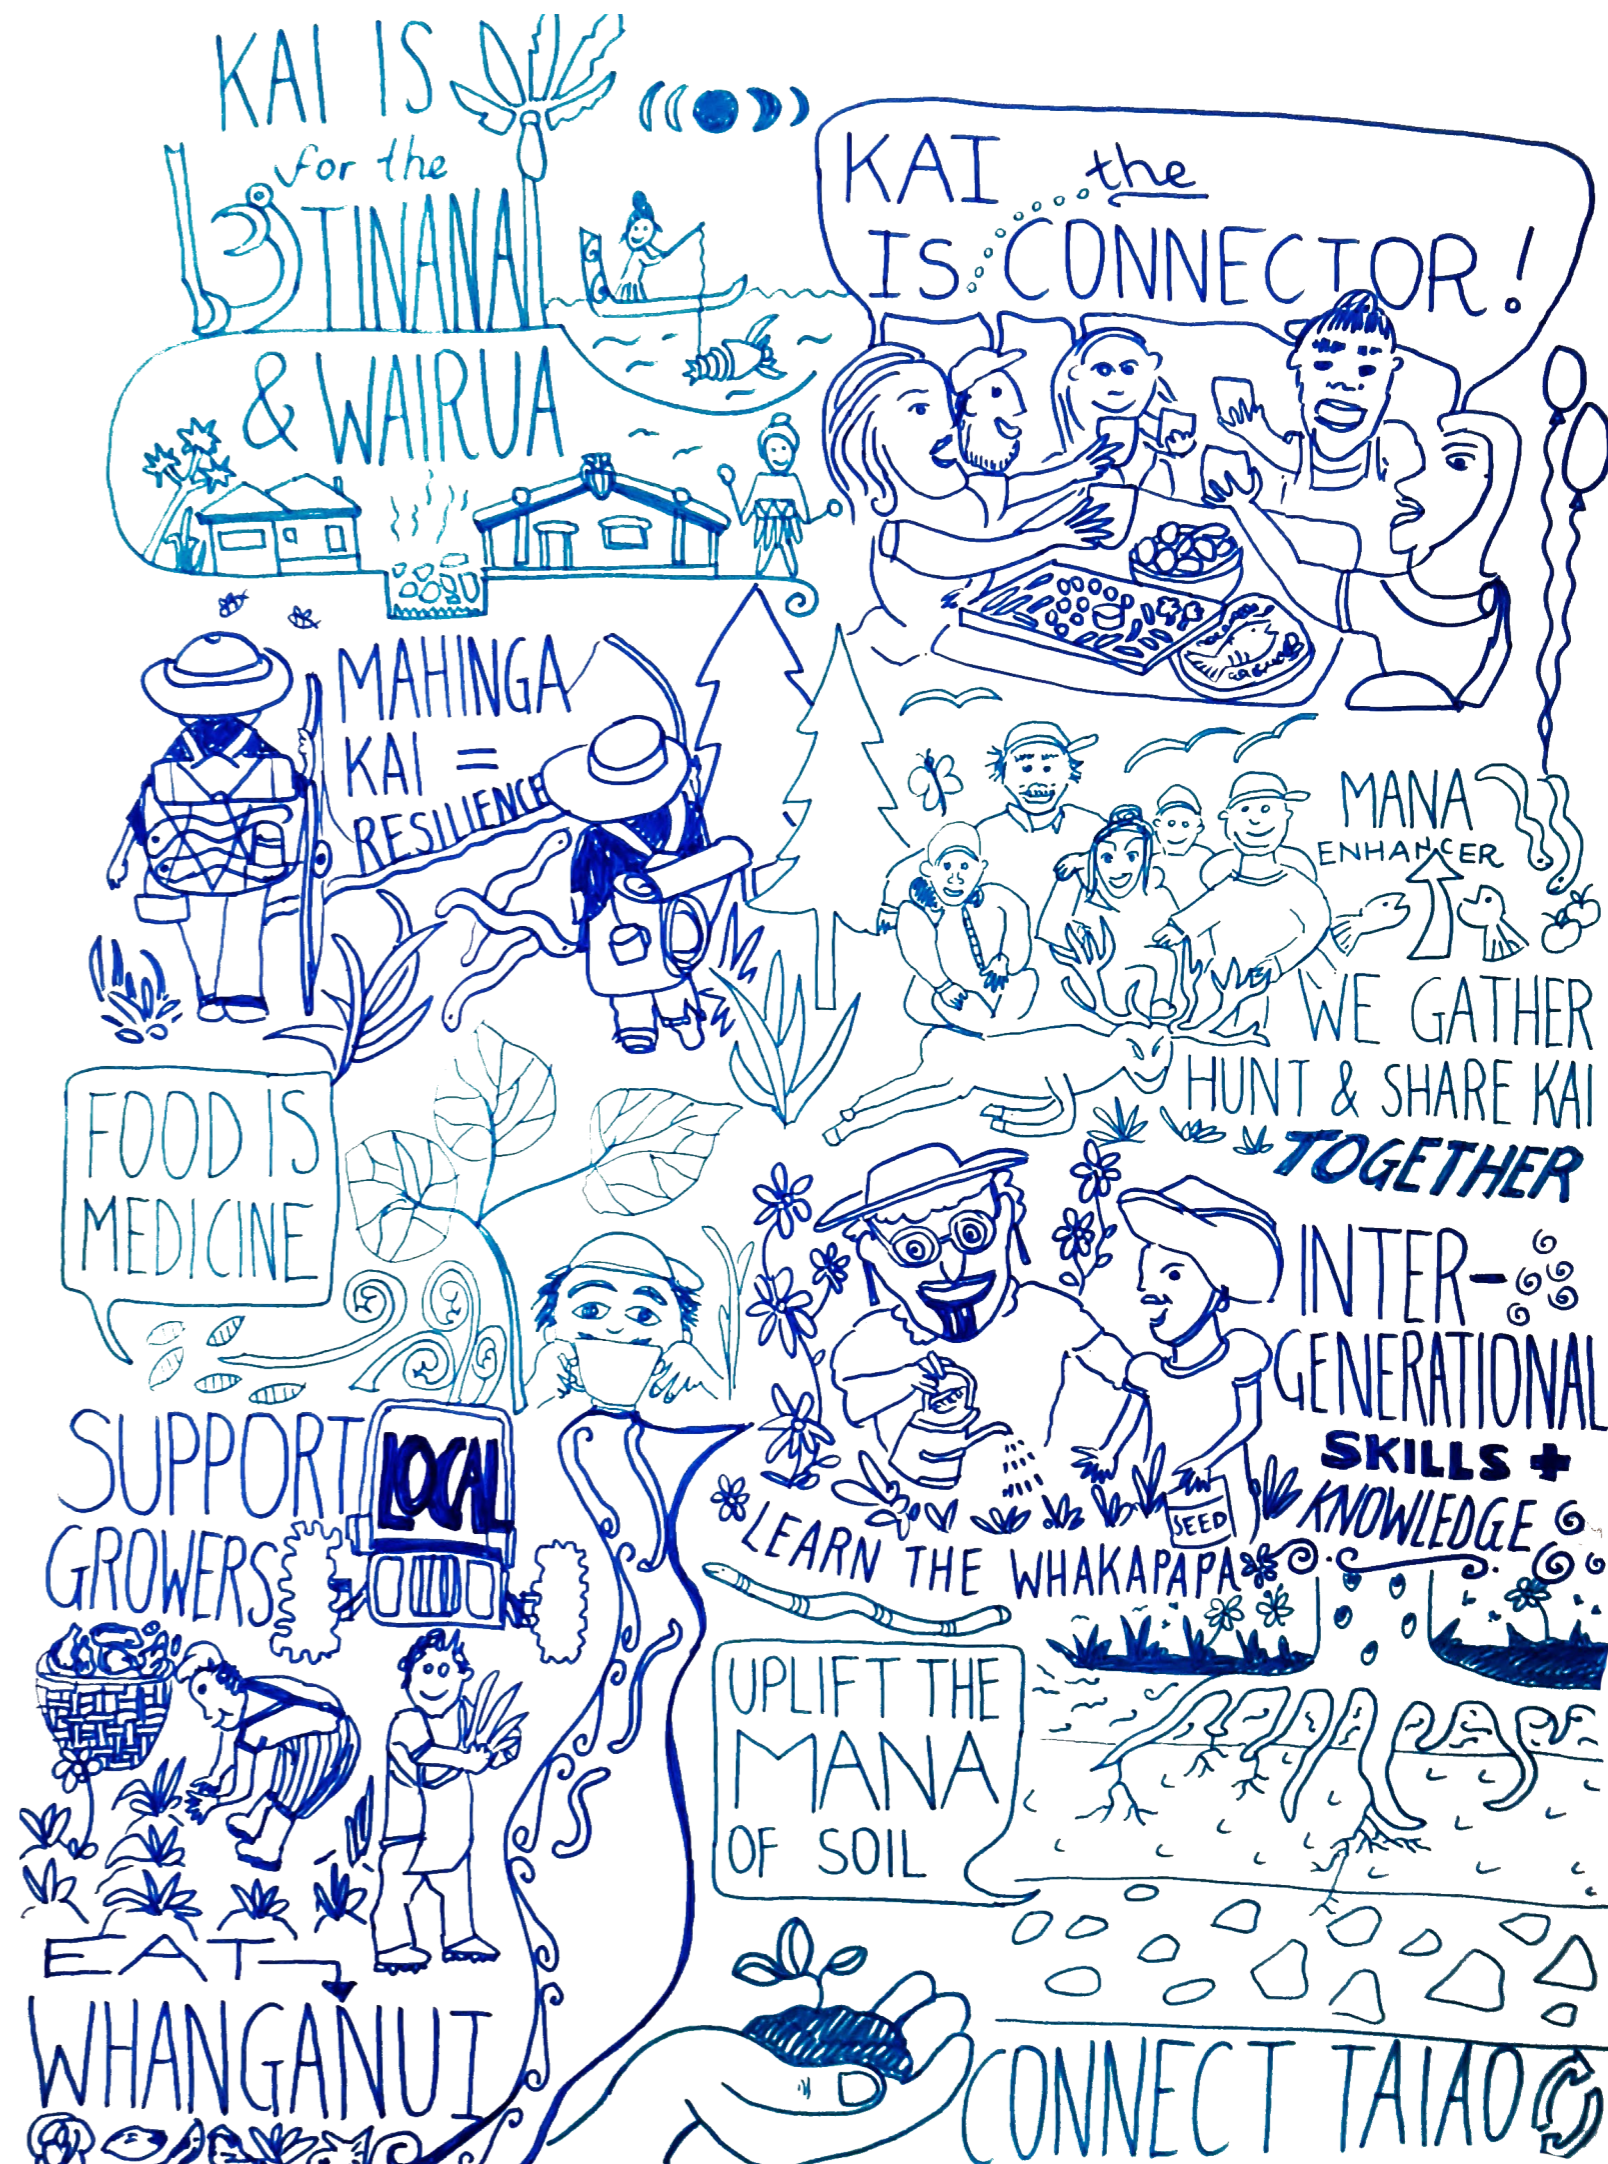 KAI IS
for the
TINANA
& WAIRUA
KAI the
IS CONNECTOR!
MAHINGA
KAI =
RESILIENCE
MANA
ENHANCER
WE GATHER
HUNT & SHARE KAI
TOGETHER
FOOD IS
MEDICINE
INTER-
GENERATIONAL
SKILLS +
KNOWLEDGE
SEED
LEARN THE WHAKAPAPA
SUPPORT
LOCAL
GROWERS
UPLIFT THE
MANA
OF SOIL
EAT
WHANGANUI
CONNECT TAIAO